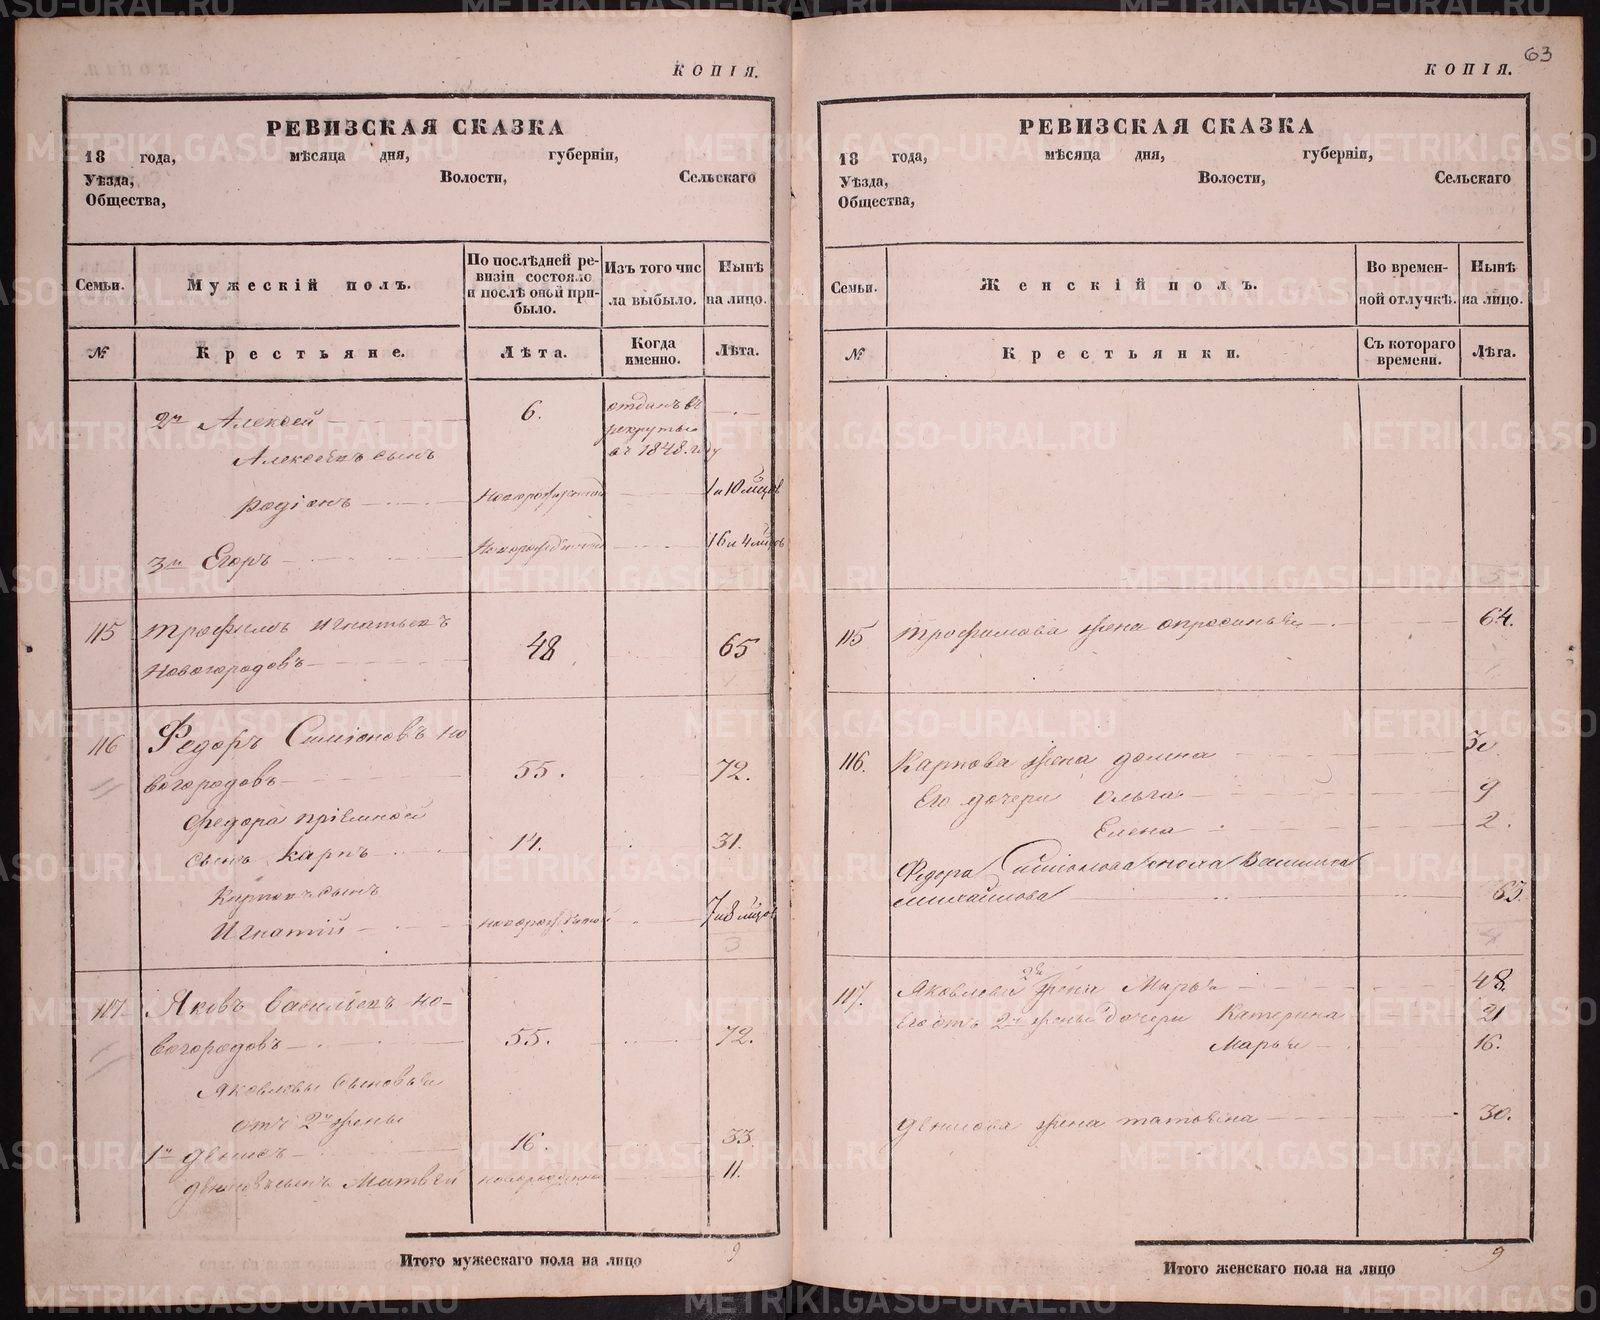 63
КОПІЯ.
РЕВИЗСКАЯ СКАЗКА
18 года, мѣсяца дня, губерніи,
Уѣзда, Волости, Сельскаго
Общества,
Семьи.
Мужескій полъ.
По послѣдней ре-
визіи состояло
и послѣ оной при-
было.
Изъ того чис
ла выбыло.
Нынѣ
на лицо.
№
Крестьяне.
Лѣта.
Когда
именно.
Лѣта.
2й Алексей 6. отданъ въ
рекруты
въ 1848. году
Алексеевъ сынъ
родіонъ новорожденной 1 и 10 мѣцов
3й Егоръ новорожденной 16 и 4 мѣцов
115 трофимъ игнатьевъ
новогородовъ 48 65
116 Федоръ Симіоновъ но
вогородовъ 55. 72.
Федора пріемной
сынъ карпъ 14. 31.
Карповъ сынъ
Игнатій новорожденной 7 и 8 мѣцов
3
117. Яковъ васильевъ но-
вогородовъ 55. 72.
Яковлевы сыновья
отъ 2й жены
1й денисъ 16 33.
денисовъ сынъ Матвей новорожденной 11.
Итого мужескаго пола на лицо 9
КОПІЯ.
РЕВИЗСКАЯ СКАЗКА
18 года, мѣсяца дня, губерніи,
Уѣзда, Волости, Сельскаго
Общества,
Семьи.
Женскій полъ.
Во времен-
ной отлучкѣ.
Нынѣ
на лицо.
№
Крестьянки.
Съ котораго
времени.
Лѣта.
115 трофимова жена апросинья 64.
116. Карпова жена домна
Его дочери ольга 9
Елена 2.
Федора Симіонова жена
михайлова 63.
117. Яковлева 2я жена Марья 48.
Его отъ 2й жены дочери Катерина 21
Марья 16.
денисова жена татьяна 30.
Итого женскаго пола на лицо 9
METRIKI.GASO-URAL.RU